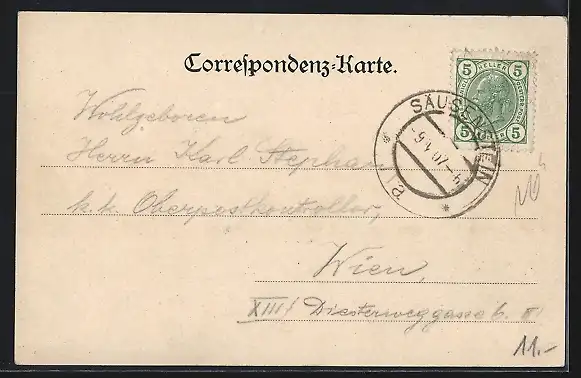 Correspondenz-Karte.
5 HELLER 5
5 5
SÄUSENSTEIN
-9.V.07.-5
* *
Wohlgeboren
Herrn Karl Stephan
k. k. Oberpostkontrollor,
Wien,
XIII/ Diesterweggasse 6.
11.-